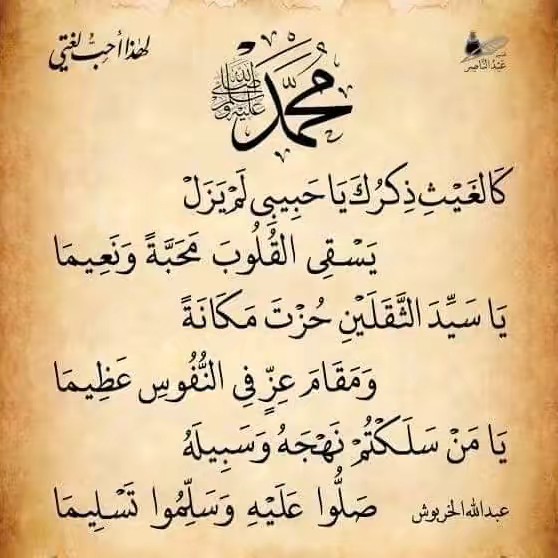 لهذا أحبُّ لغتي
تصميم
عَبْدُ النَّاصِر
مُحَمَّد صلى الله عليه وسلم
كَالغَيْثِ ذِكرُكَ يَا حَبِيبِي لَمْ يَزَلْ
يَسْقِي القُلُوبَ مَحَبَّةً وَنَعِيمَا
يَا سَيِّدَ الثَّقَلَيْنِ حُزْتَ مَكَانَةً
وَمَقَامَ عِزٍّ فِي النُّفُوسِ عَظِيمَا
يَا مَنْ سَلَكْتُمْ نَهْجَهُ وَسَبِيلَهُ
صَلُّوا عَلَيْهِ وَسَلِّمُوا تَسْلِيمَا
عبدالله الخربوش